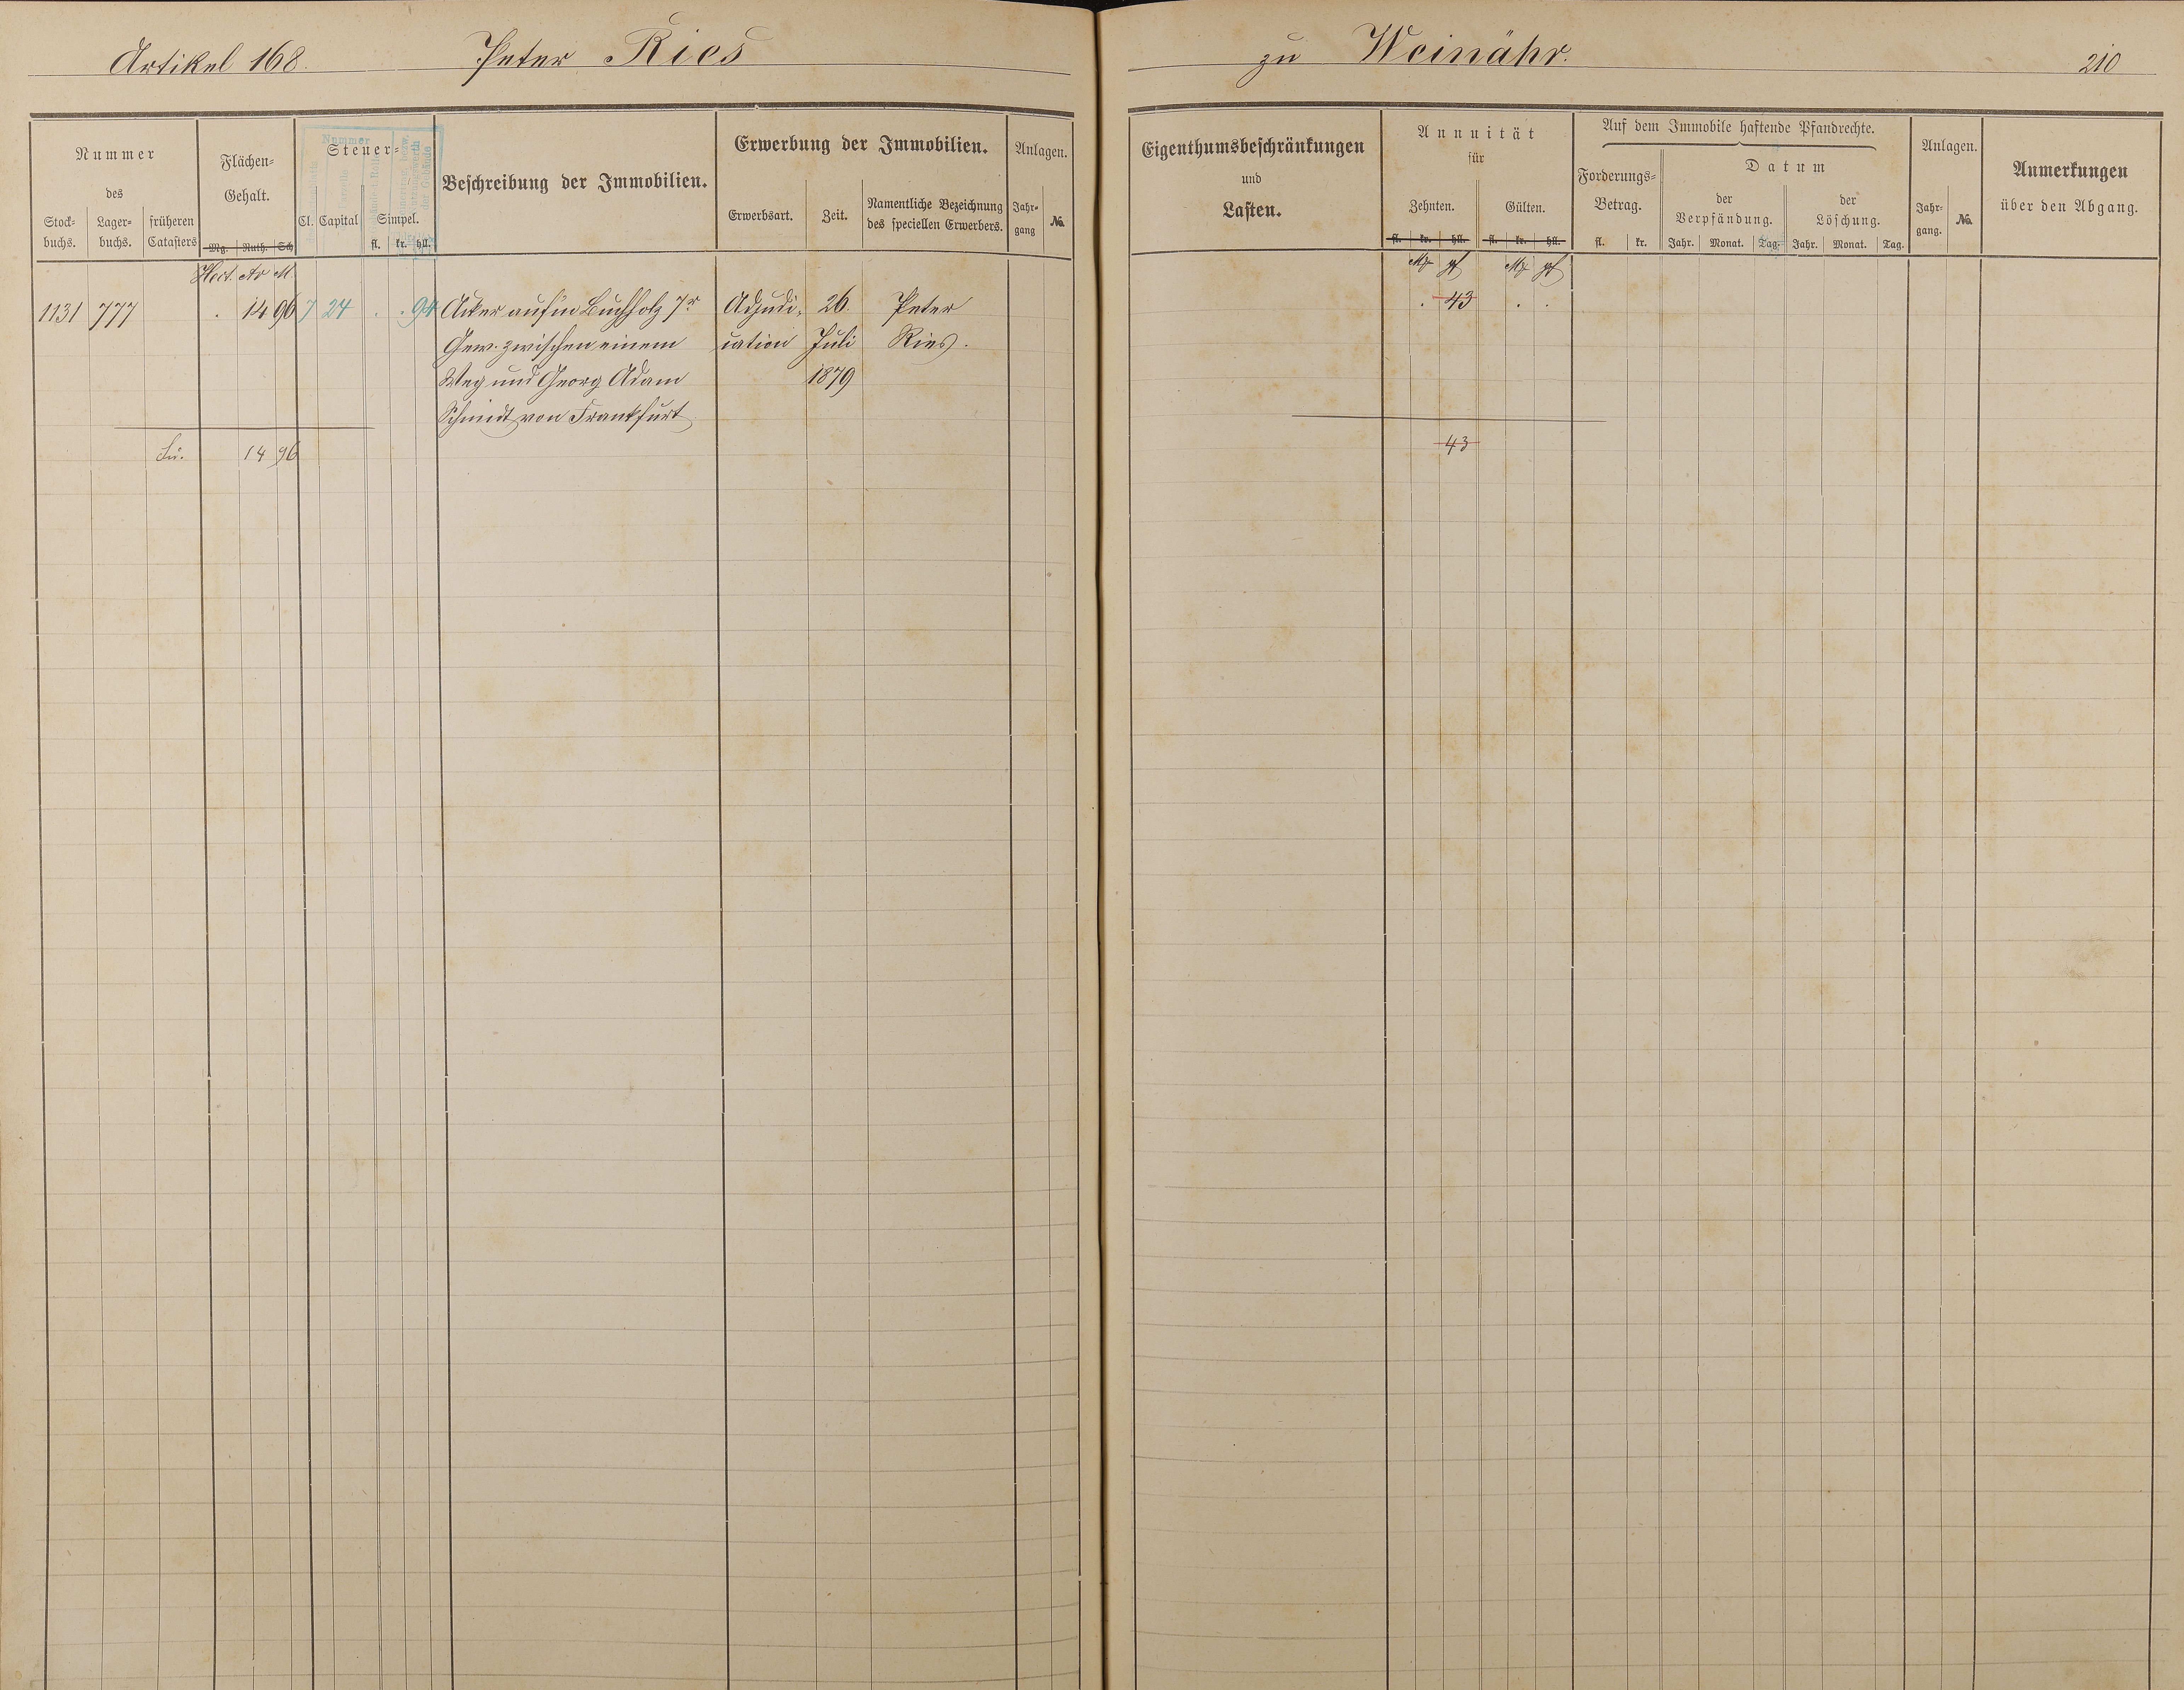 Artikel 168. Peter Ries zu Weinähr. 210
Nummer
des
Stock-
buchs.
Lager-
buchs.
früheren
Catasters
Flächen-
Gehalt.
Mg. Ruth. Sch
Hect. Ar M.
Nummer
Steuer-
Cl. Capital Simpel.
fl. kr. hll.
Beschreibung der Immobilien.
Erwerbung der Immobilien.
Erwerbsart.
Zeit.
Namentliche Bezeichnung
des speciellen Erwerbers.
Anlagen.
Jahr-
gang
No.
Eigenthumsbeschränkungen
und
Lasten.
Annuität
für
Zehnten. Gülten.
fl. kr. hll. fl. kr. hll.
Mk pf Mk pf
Auf dem Immobile haftende Pfandrechte.
Forderungs-
Betrag.
fl. kr.
Datum
der
Verpfändung.
Jahr. Monat. Tag.
der
Löschung.
Jahr. Monat. Tag.
Anlagen.
Jahr-
gang.
No.
Anmerkungen
über den Abgang.
1131 777 . 14 96 7 24 . . 94 Acker auf'm Buchholz 7r Adjudi- 26. Peter . 43 . .
Gew. zwischen einem cation Juli Ries.
Weg und Georg Adam 1879
Schmidt von Frankfurt
14 96 43